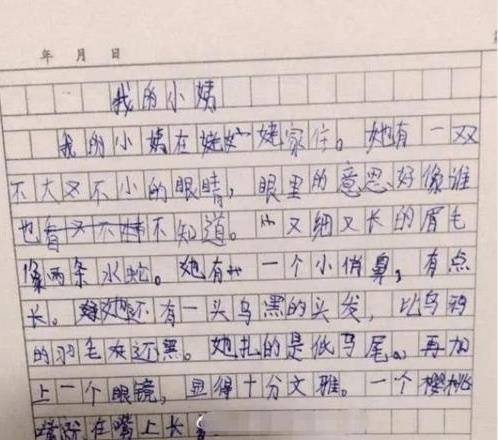 年 月 日
我的小姨
我的小姨在姥姥家住。她有一双
不大又不小的眼睛，眼里的意思好像谁
也看不不知道。又细又长的眉毛
像两条水蛇。她有一个小俏鼻，有点
长。她还有一头乌黑的头发，比乌鸦
的羽毛灰还黑。她扎的是低马尾。再加
上一个眼镜，显得十分文雅。一个樱桃
嘴就在嘴上长